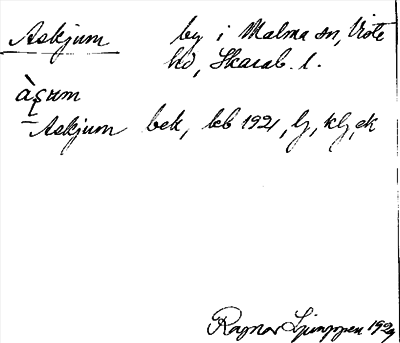 Askjum by i Malma sn, Viste
hd, Skarab. l.
àʂum
Askjum bek, lcb 1921, lj, klj, ek
Ragnar Ljunggren 1929